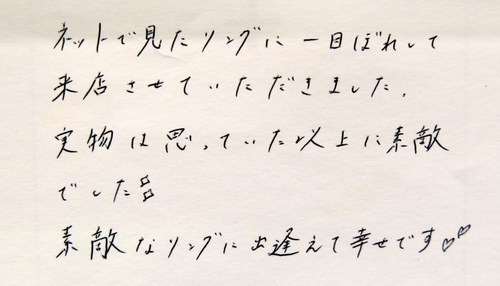 ネットで見たリングに一目ぼれして
来店させていただきました。
実物は思っていた以上に素敵
でした
素敵なリングに出逢えて幸せです♡♡